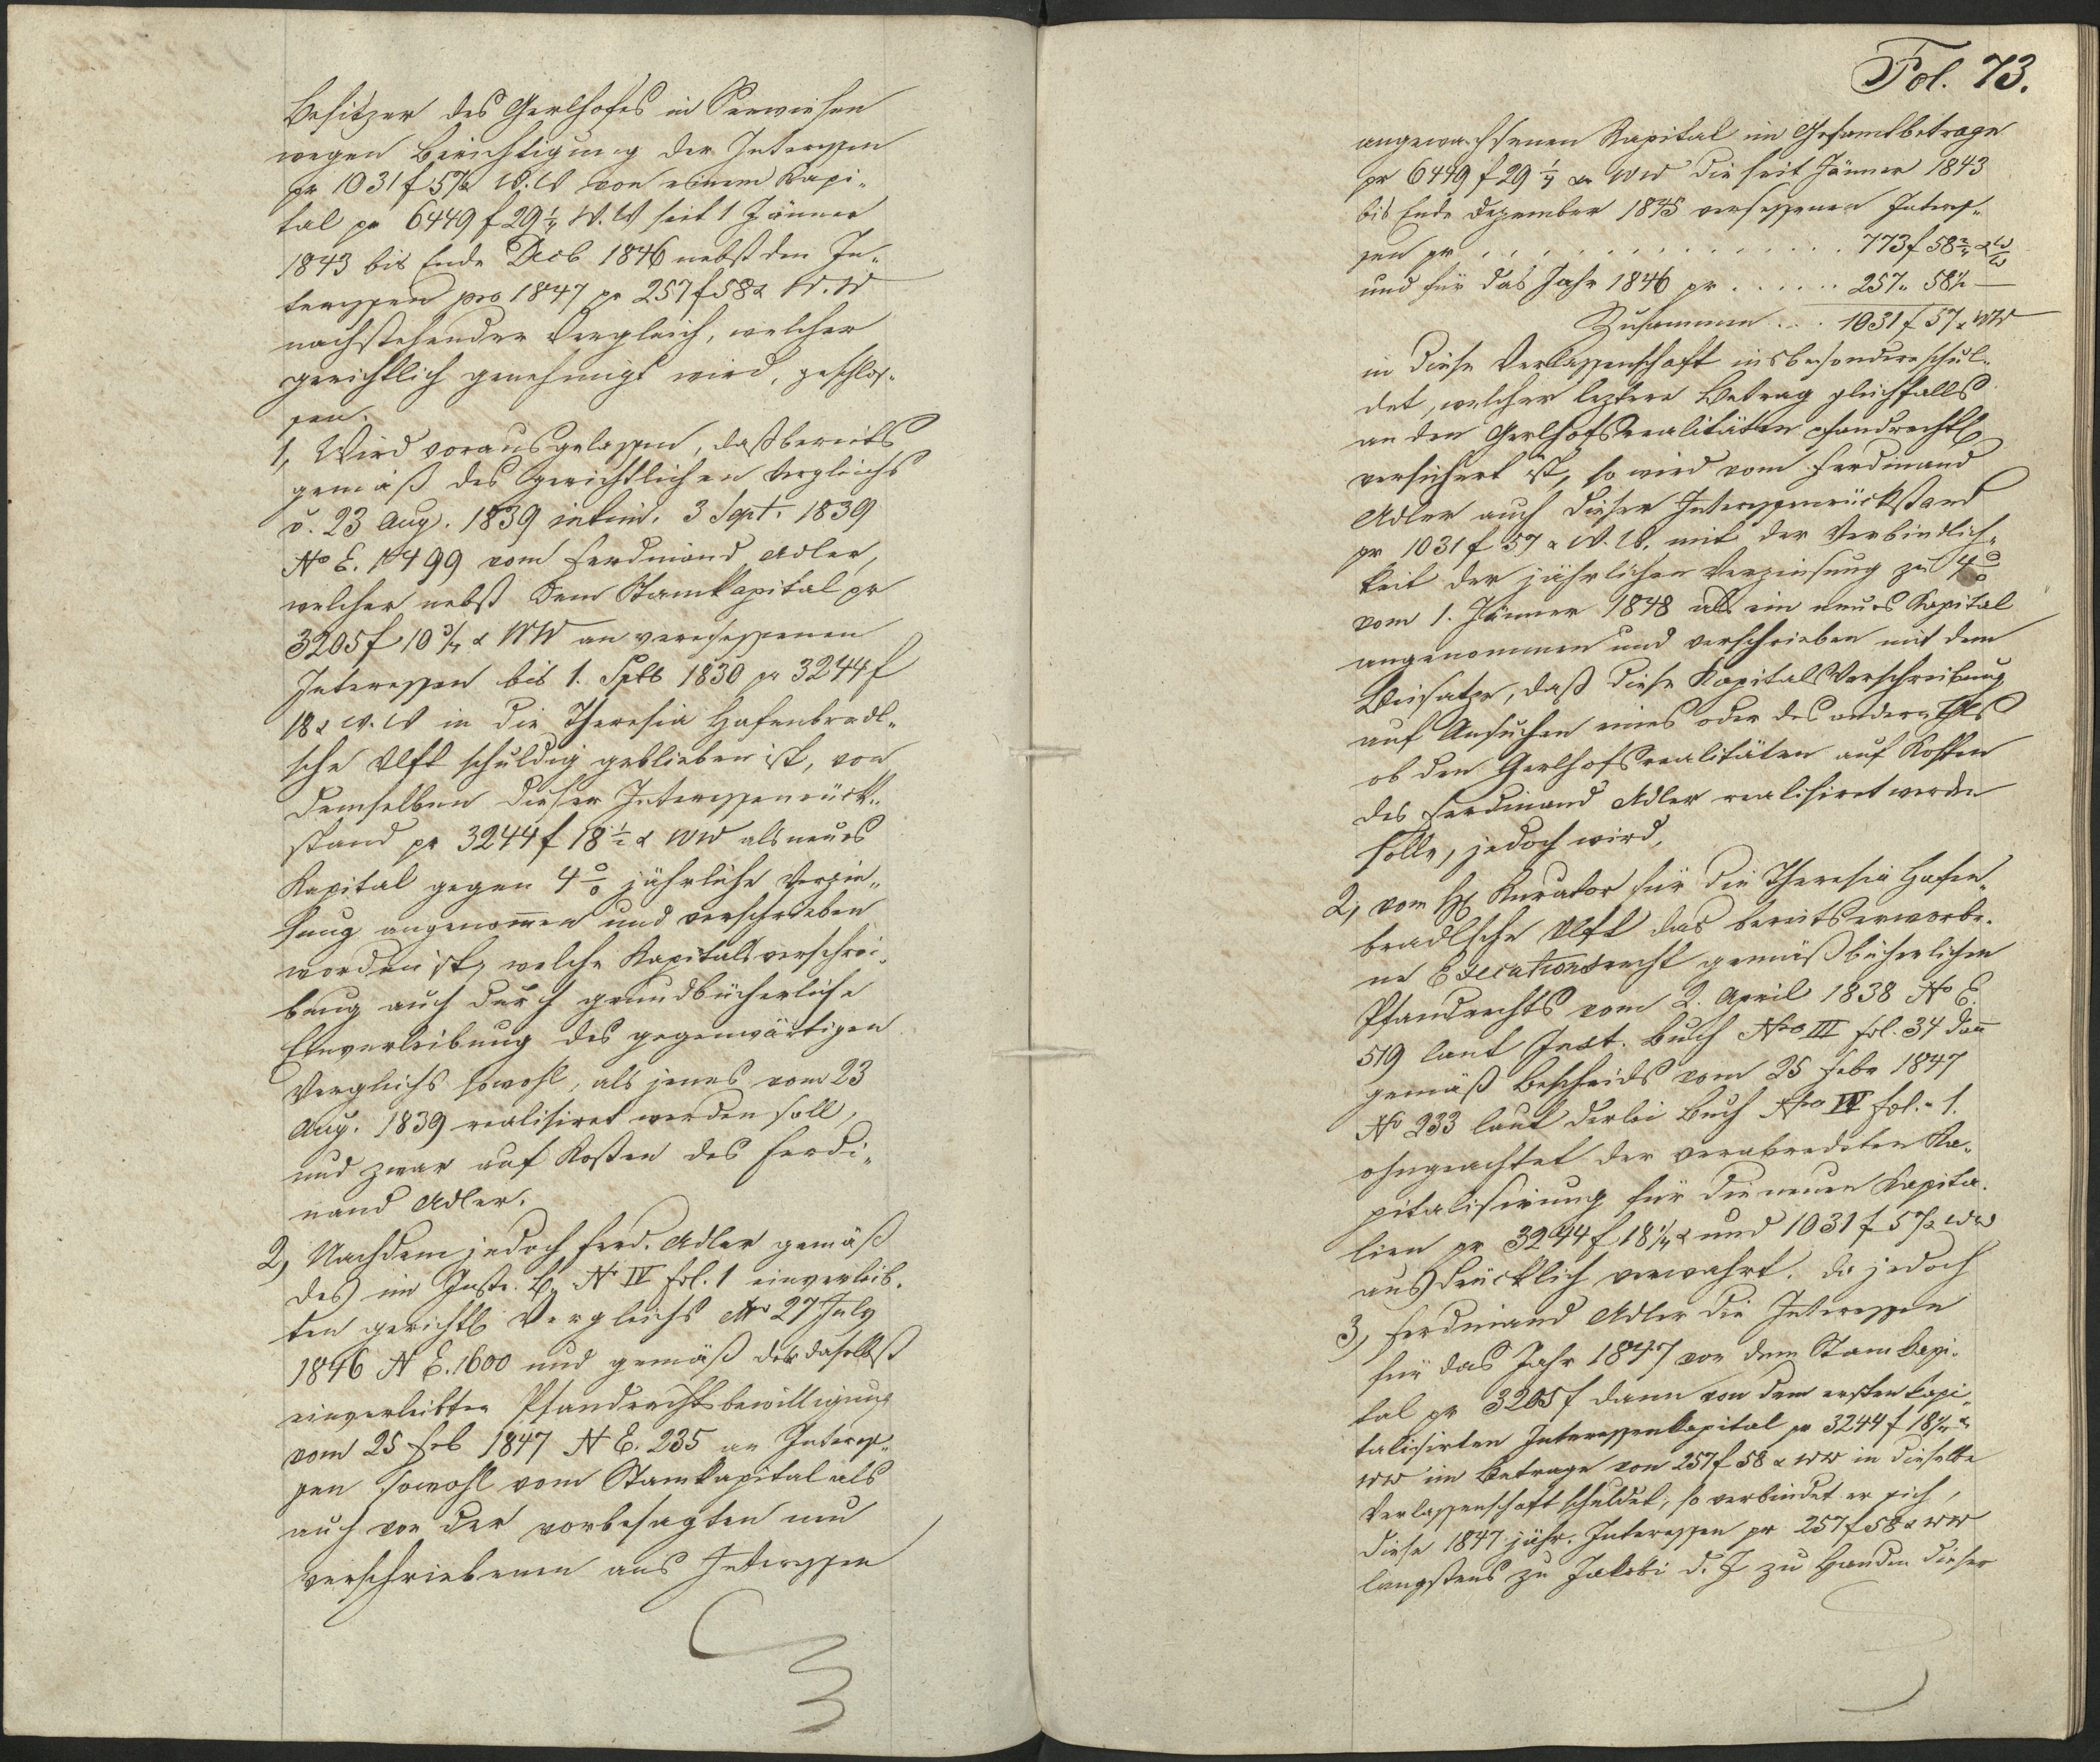 Besitzer des Gerlhofes in Seewiesen
wegen Berichtigung der Interessen
pr 1031 f 57 x W.W von einem Kapi„
tal pr 6449 f 29 1/4 W.W seit 1 Jänner
1843 bis Ende Decb 1846 nebst den In„
teressen pro 1847 pr 257 f 58 x W.W
nachstehender Vergleich, welcher
gerichtlich genehmigt wird, geschlos„
sen.
1, Wird vorausgelassen, daß bereits
gemäß des gerichtlichen Vergleichs
v. 23 Aug. 1839 intim. 3 Sept. 1839
No E. 1499 vom Ferdinand Adler,
welcher nebst dem Stamkapital pr
3205 f 10 3/4 x WW an versessenen
Interessen bis 1. Sptb 1830 pr 3244 f
18 x W.W in die Theresia Hafenbradl„
sche Vlft schuldig geblieben ist, von
demselben dieser Interessenrück„
stand pr 3244 f 18 1/2 x WW als neues
Kapital gegen 4 % jährliche Verzin„
sung angenom̅en und verschrieben
worden ist, welche Kapitalsverschrei„
bung auch durch grundbücherliche
Einverleibung des gegenwärtigen
Vergleichs sowohl, als jenes vom 23
Aug. 1839 realisiret werden soll,
und zwar auf Kosten des Ferdi„
nand Adler.
2, Nachdem jedoch Ferd. Adler gemäß
des im Instr. B. No IV fol. 1 einverleib„
ten gerichtl Vergleichs 27 July
1846 N E. 1600 und gemäß der daselbst
einverleibten Pfandrechtsbewilligung
vom 25 Feb 1847 N E. 235 an Interes„
sen sowohl vom Stamkapital als
auch von der vorbesagten neu
verschriebenen aus Interessen
Fol. 73.
angewachsenen Kapital im Gesamtbetrage
pr 6449 f 29 1/4 x WW die seit Jänner 1843
bis Ende Dezember 1845 versessenen Interes„
sen pr . . . . . . . . . . . . . . 773 f 58 2/4 x WW
und für das Jahr 1846 pr . . . . . . 257 „ 58 1/2 —
Zusammen . . . 1031 f 57 x WW
in diese Verlassenschaft insbesondere schul„
det, welcher leztere Betrag gleichfalls
an den Gerlhofsrealitäten pfandrechtl
versichert ist, so wird vom Ferdinand
Adler auch dieser Interessenrückstand
pr 1031 f 57 x W.W. mit der Verbindlich„
keit der jährlichen Verzinsung zu 4 %
vom 1. Jänner 1848 als ein neues Kapital
angenommen und verschrieben mit dem
Beisatze, daß diese Kapitals Verschreibung
auf Ansuchen eines oder des andern Thls
ob den Gerlhofsrealitäten auf Kosten
des Ferdinand Adler realisiret werden
solle, jedoch wird,
2, vom H Kurator für die Theresia Hafen„
bradlsche Vlft das bereits erworbe„
ne Executionsrecht gemäß bücherlichen
Pfandrechts vom 2. April 1838 No E.
519 laut Inst. Buch Nro III fol. 34 dan̅
gemäß Bescheids vom 25 Febr 1847
No 233 laut derlei Buch Nro IV fol. 1.
ohngeachtet der verabredeten Ka„
pitalisirung für die neuen Kapita„
lien pr 3244 f 18 1/4 x und 1031 f 57 x WW
ausdrücklich verwahrt. da jedoch
3, Ferdinand Adler die Interessen
für das Jahr 1847 von dem Stamkapi„
tal pr 3205 f dann von dem ersten kapi„
talisirten Interessenkapital pr 3244 f 18 1/2 x
WW im Betrage von 257 f 58 x WW in dieselbe
Verlassenschaft schuldet, so verbindet er sich,
diese 1847 jähr. Interessen pr 257 f 58 x WW
längstens zu Jakobi d. J zu Handen dieser